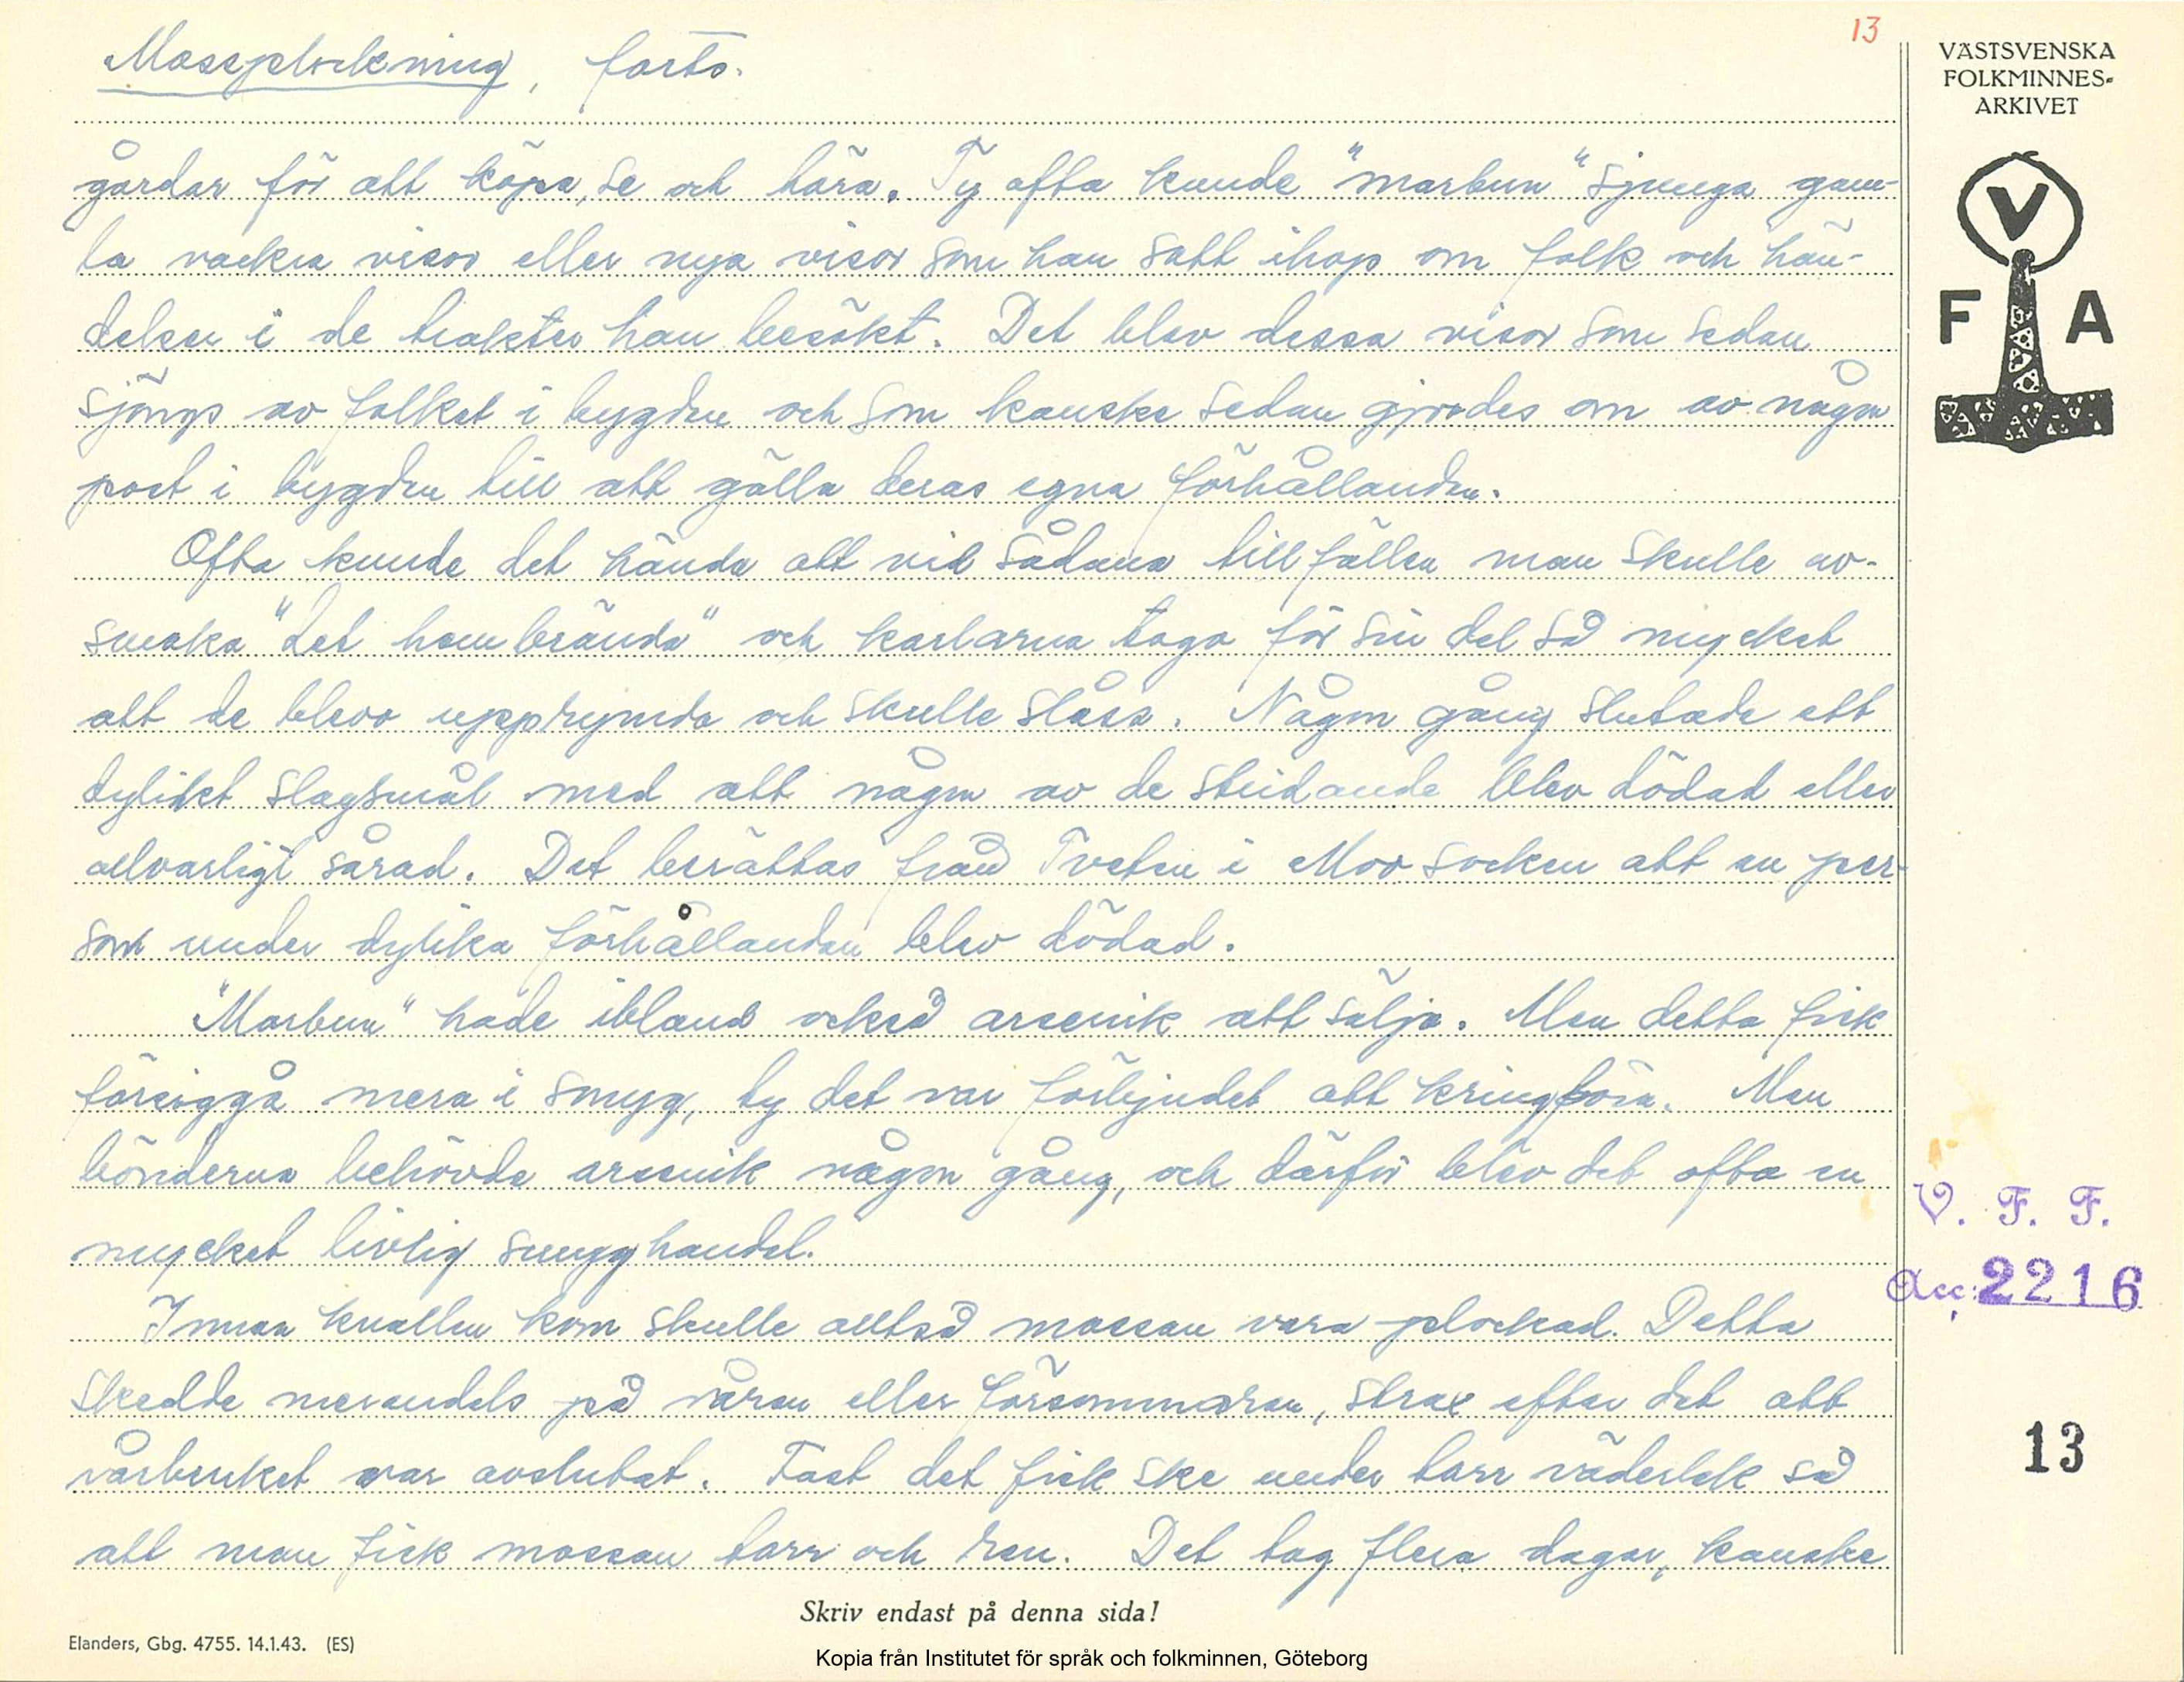 13
Mossplockning, forts.
VÄSTSVENSKA
FOLKMINNES-
ARKIVET
V
F A
gårdar för att köpa, se och höra. Ty ofta kunde "marbun" sjunga gam-
la vackra visor eller nya visor som han satt ihop om folk och hän-
delser i de trakter han besökt. Det blev dessa visor som sedan
sjöngs av folket i bygden och som kanske sedan gjordes om av någon
poet i bygden till att gälla deras egna förhållanden.
Ofta kunde det hända att vid sådana tillfällen man skulle av-
smaka "det hembrända" och karlarna togo för sin del så mycket
att de blevo upprymda och skulle slåss. Någon gång slutade ett
dylikt slagsmål med att någon av de stridande blev dödad eller
allvarligt sårad. Det berättas från Tveten i Moo socken att en per-
son under dylika förhållanden blev dödad.
"Marbun" hade ibland också arsenik att sälja. Men detta fick
försiggå mera i smyg, ty det var förbjudet att kringföra. Men
bönderna behövde arsenik någon gång, och därför blev det ofta en
mycket livlig smyghandel.
Innan knallen kom skulle alltså mossan vara plockad. Detta
skedde merendels på våren eller försommaren, strax efter det att
vårbruket var avslutat. Fast det fick ske under torr väderlek så
att man fick mossan torr och ren. Det tog flera dagar, kanske
V. F. F.
Acc. 2216
13
Skriv endast på denna sida!
Elanders, Gbg. 4755. 14.1.43. (ES)
Kopia från Institutet för språk och folkminnen, Göteborg